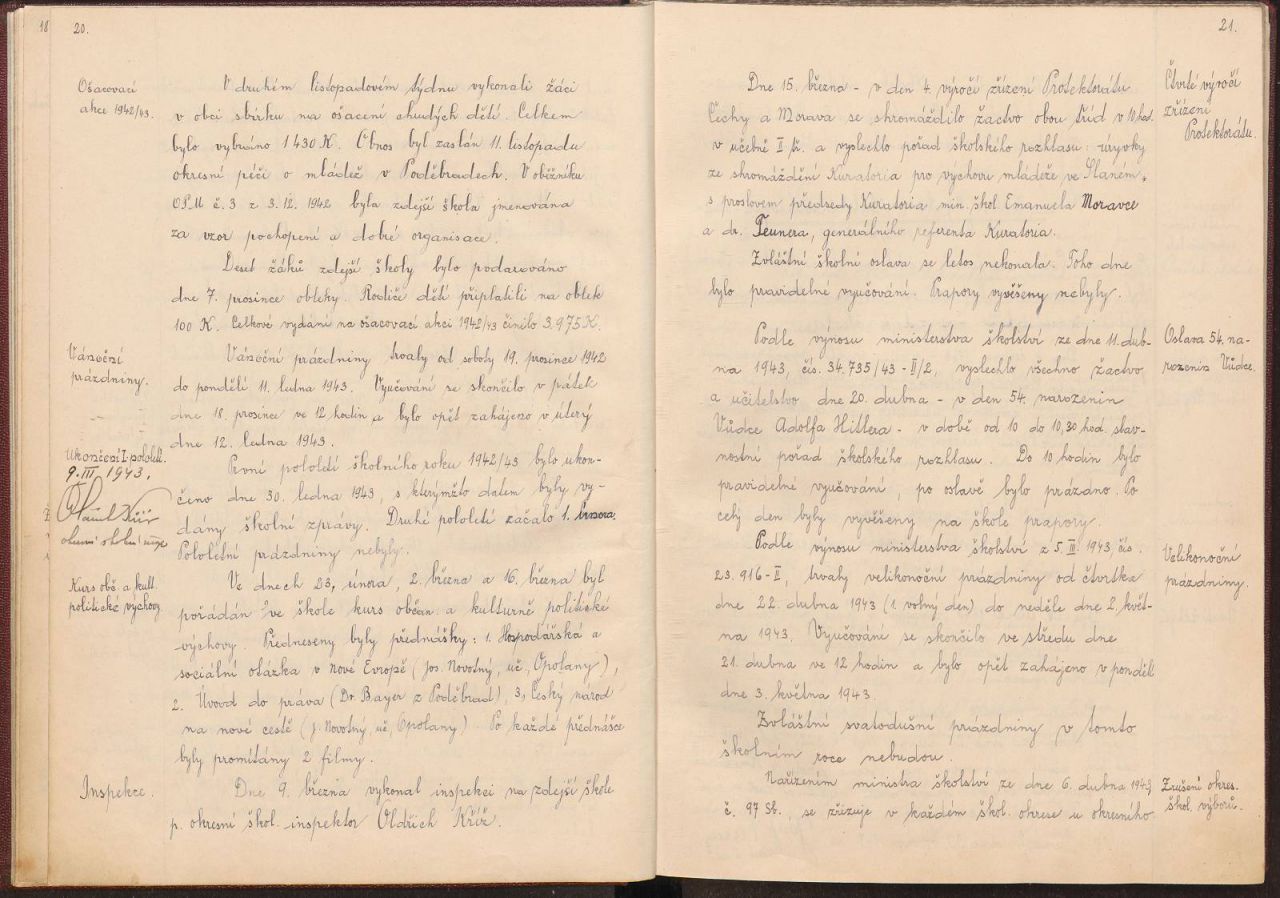 18
20.
Ošacovací
akce 1942/43.
V druhém listopadovém týdnu vykonali žáci
v obci sbírku na ošacení chudých dětí. Celkem
bylo vybráno 1430 K. Obnos byl zaslán 11. listopadu
okresní péči o mládež v Poděbradech. V oběžníku
OPM č. 3 z 3.12. 1942 byla zdejší škola jmenována
za vzor pochopení a dobré organisace.
Deset žáků zdejší školy bylo podarováno
dne 7. prosince obleky. Rodiče dětí připlatili na oblek
100 K. Celkové vydání na ošacovací akci 1942/43 činilo 3.975 K.
Vánoční
prázdniny.
Vánoční prázdniny trvaly od soboty 19. prosince 1942
do pondělí 11. ledna 1943. Vyučování se skončilo v pátek
dne 18. prosince ve 12 hodin a bylo opět zahájeno v úterý
dne 12. ledna 1943.
Ukončení I. pololetí.
9. III. 1943.
Oldřich Kříž
okresní školní insp.
První pololetí školního roku 1942/43 bylo ukon-
čeno dne 30. ledna 1943, s kterýmžto datem byly vy-
dány školní zprávy. Druhé pololetí začalo 1. února.
Pololetní prázdniny nebyly.
Kurs obč. a kult.
politické výchovy.
Ve dnech 23. února, 2. března a 16. března byl
pořádán ve škole kurs občan. a kulturně politické
výchovy. Předneseny byly přednášky: 1. Hospodářská a
sociální otázka v nové Evropě (Jos. Novotný, uč., Opolany),
2. Úvod do práva (Dr. Bayer z Poděbrad), 3, Český národ
na nové cestě (J. Novotný, uč., Opolany). Po každé přednášce
byly promítány 2 filmy.
Inspekce.
Dne 9. března vykonal inspekci na zdejší škole
p. okresní škol. inspektor Oldřich Kříž.
21.
Čtvrté výročí
zřízení
Protektorátu.
Dne 15. března - v den 4. výročí zřízení Protektorátu
Čechy a Morava se shromáždilo žactvo obou tříd v 10 hod.
v učebně II. tř. a vyslechlo pořad školského rozhlasu: úryvky
ze shromáždění Kuratoria pro výchovu mládeže ve Slaném,
s proslovem předsedy Kuratoria min. škol. Emanuela Moravce
a dr. Teunera, generálního referenta Kuratoria.
Zvláštní školní oslava se letos nekonala. Toho dne
bylo pravidelné vyučování. Prapory vyvěšeny nebyly.
Oslava 54. na-
rozenin Vůdce.
Podle výnosu ministerstva školství ze dne 11. dub-
na 1943, čís. 34.735/43 - II/2, vyslechlo všechno žactvo
a učitelstvo dne 20. dubna - v den 54. narozenin
Vůdce Adolfa Hitlera - v době od 10 do 10,30 hod. slav-
nostní pořad školského rozhlasu. Do 10 hodin bylo
pravidelné vyučování, po oslavě bylo prázdno. Po
celý den byly vyvěšeny na škole prapory.
Velikonoční
prázdniny.
Podle výnosu ministerstva školství z 5. III. 1943, čís.
23.916-I, trvaly velikonoční prázdniny od čtvrtka
dne 22. dubna 1943 (1. volný den) do neděle dne 2. květ-
na 1943. Vyučování se skončilo ve středu dne
21. dubna ve 12 hodin a bylo opět zahájeno v pondělí
dne 3. května 1943.
Zvláštní svatodušní prázdniny v tomto
školním roce nebudou.
Zrušení okres.
škol. výborů.
Nařízením ministra školství ze dne 6. dubna 1943,
č. 97 Sb., se zřizuje v každém škol. okrese u okresního